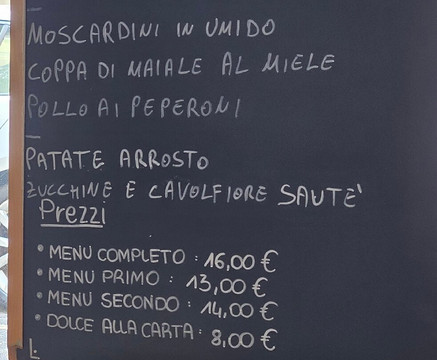 MOSCARDINI IN UMIDO
COPPA DI MAIALE AL MIELE
POLLO AI PEPERONI
PATATE ARROSTO
ZUCCHINE E CAVOLFIORE SAUTE'
Prezzi
• MENU COMPLETO : 16,00 €
• MENU PRIMO : 13,00 €
• MENU SECONDO : 14,00 €
• DOLCE ALLA CARTA : 8,00 €